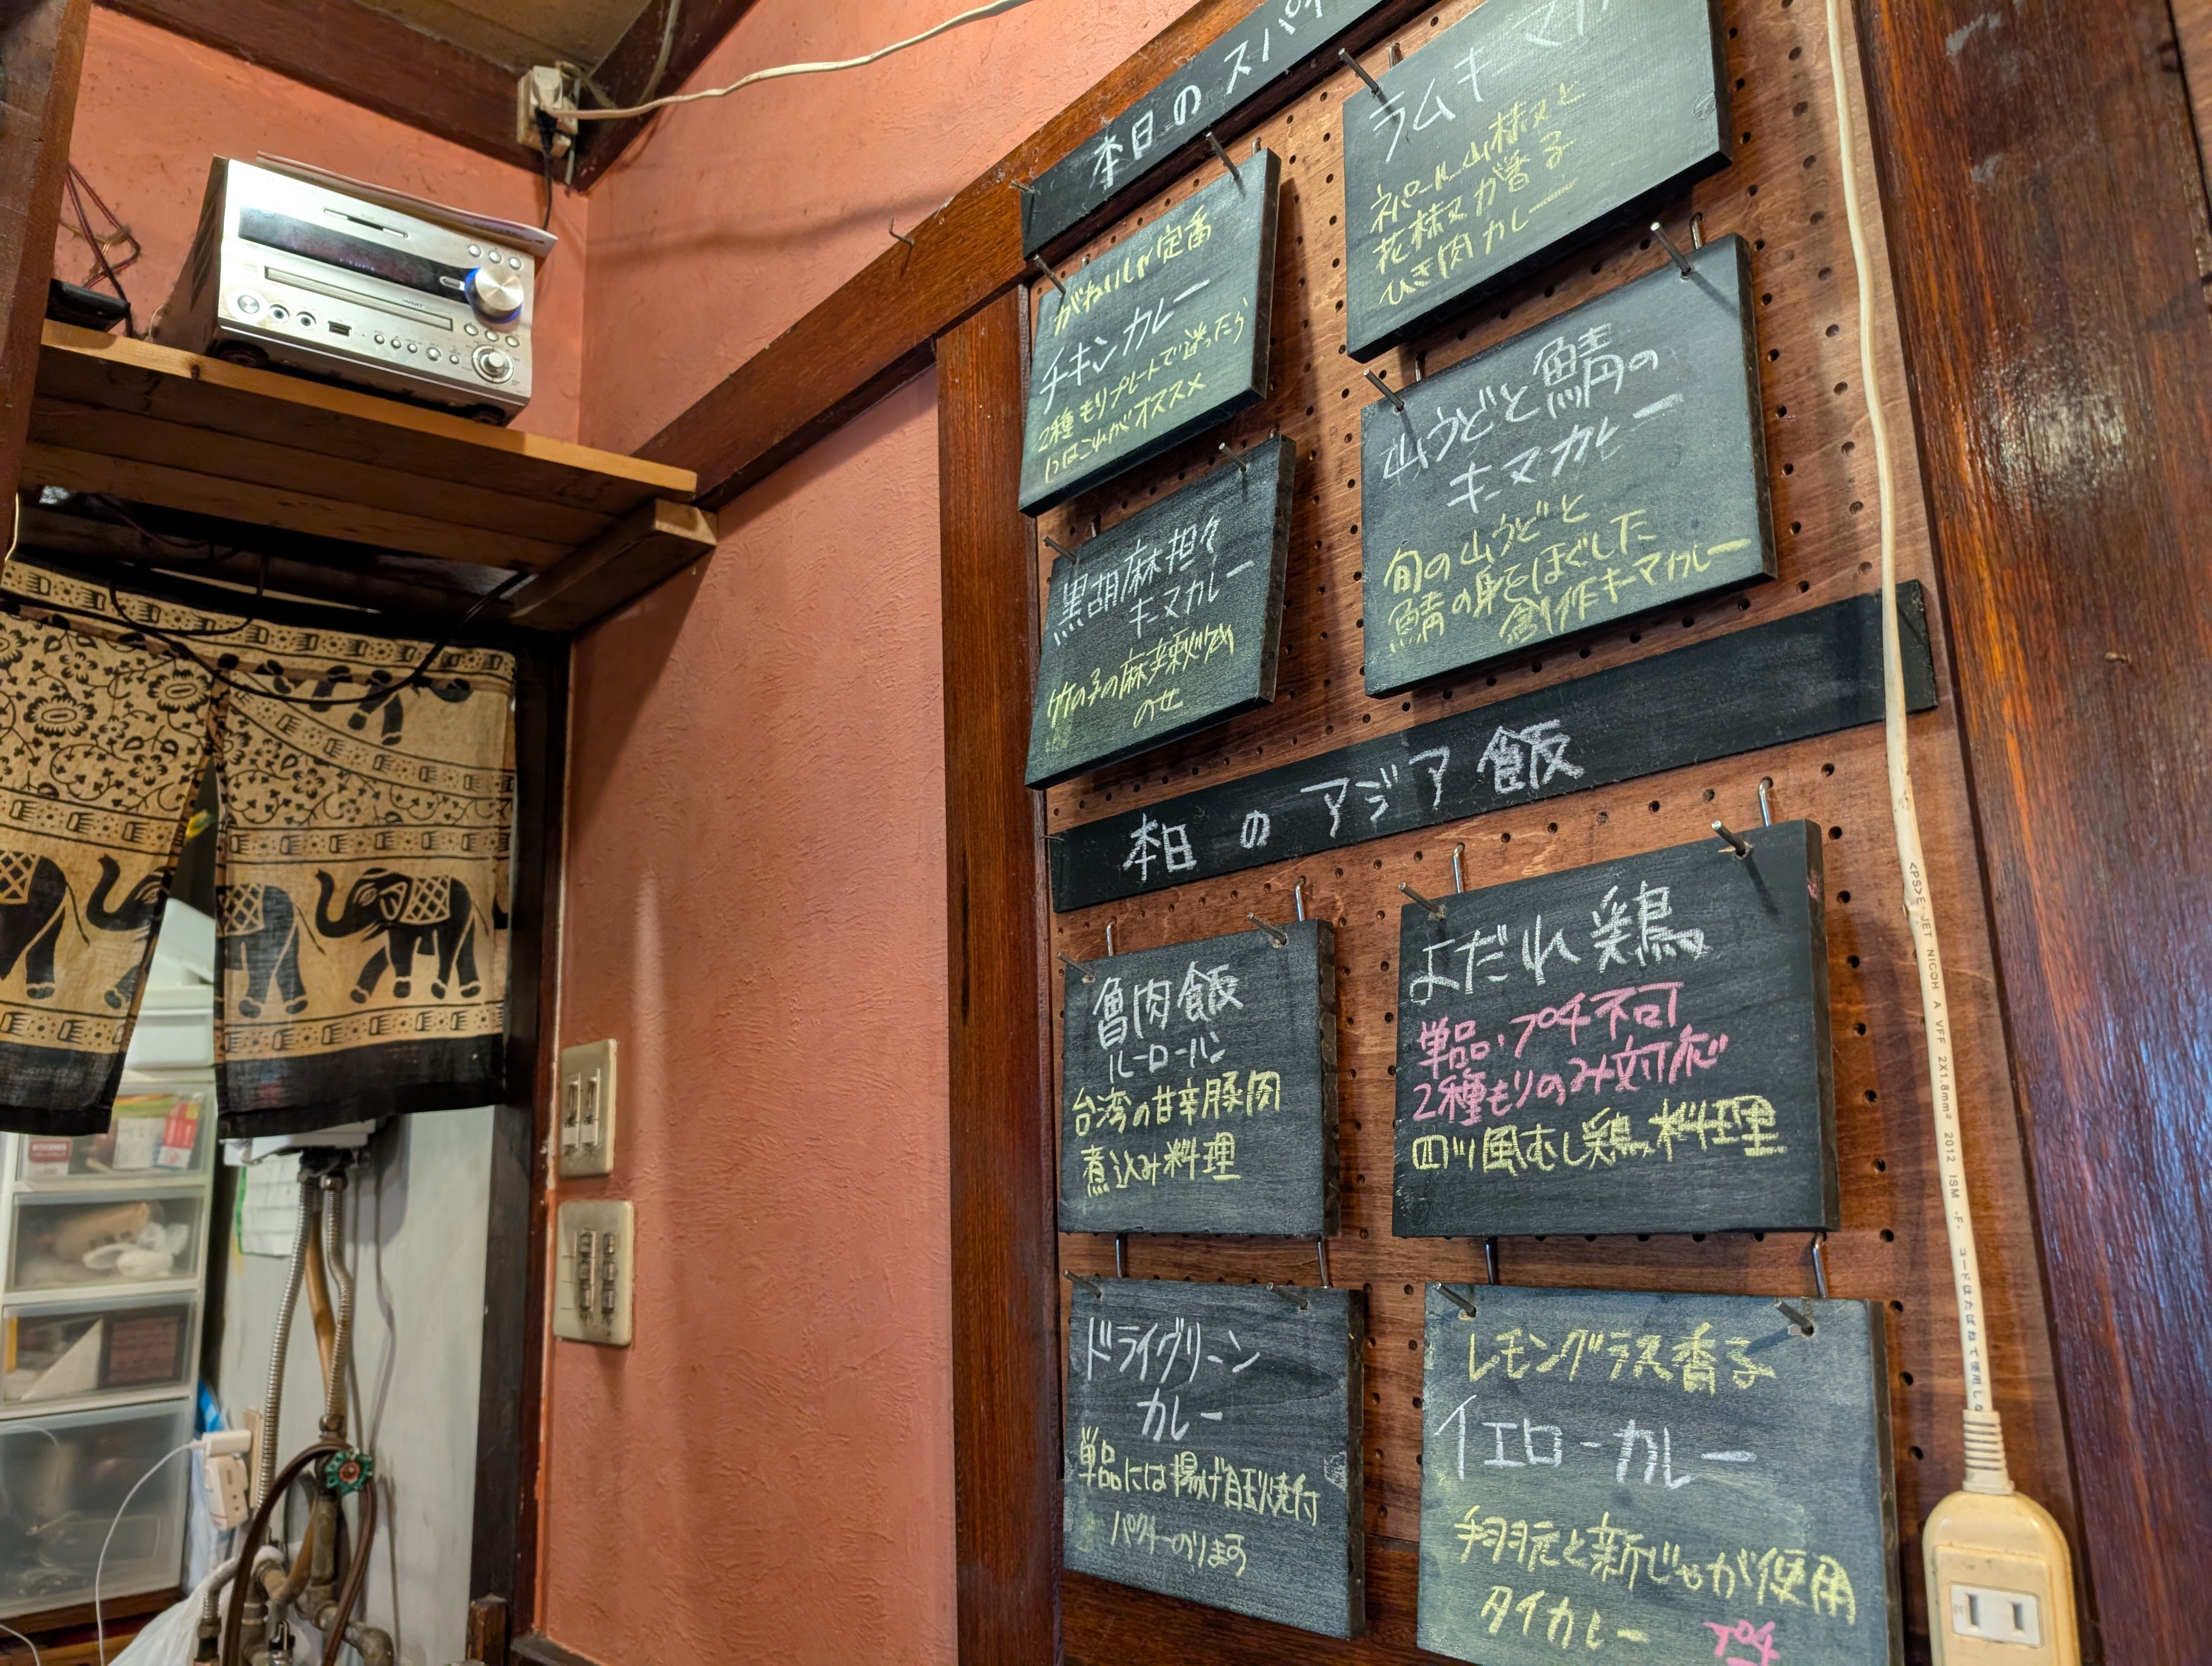 本日のスパイ
がねいしゃ定番
チキンカレー
2種もりプレートで迷ったら
にはこれがオススメ
ラムキーマカ
ネパール山椒と
花椒が香る
ひき肉カレー
黒胡麻担々
キーマカレー
竹の子の麻辣炒め
のせ
山うどと鯖の
キーマカレー
旬の山うどと
鯖の身をほぐした
創作キーマカレー
本日のアジア飯
魯肉飯
ルーローハン
台湾の甘辛豚肉
煮込み料理
よだれ鶏
単品・プチ不可
2種もりのみ対応
四川風むし鶏料理
ドライグリーン
カレー
単品には揚げ目玉焼付
パクチーのります
レモングラス香る
イエローカレー
手羽元と新じゃが使用
タイカレー
<PS>E JET NICOH A VFF 2X1.8mm² 2012 ISM -F- コードはたばねて使用し